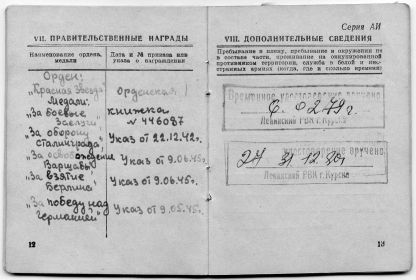 VII. ПРАВИТЕЛЬСТВЕННЫЕ НАГРАДЫ
Наименование ордена, медали
Дата и № приказа или указа о награждении
Орден:
„Красная Звезда"
Орденская
Медали:
книжка
„За боевые
№ 446087
Заслуги"
„За оборону
Указ от 22.12.42г.
Сталинграда"
„За освобождение
Указ от 9.06.45г.
Варшавы"
„За взятие
Указ от 9.06.45г.
Берлина"
„За победу над
Указ от 9.05.45г.
Германией"
12
Серия АИ
VIII. ДОПОЛНИТЕЛЬНЫЕ СВЕДЕНИЯ
Пребывание в плену, пребывание в окружении не
в составе части, проживание на оккупированной
противником территории, служба в белой и ино-
странных армиях (когда, где и сколько времени)
Временное удостоверение вручено
Ленинский РВК г. Курска
удостоверение вручено
Ленинский РВК г. Курска
13